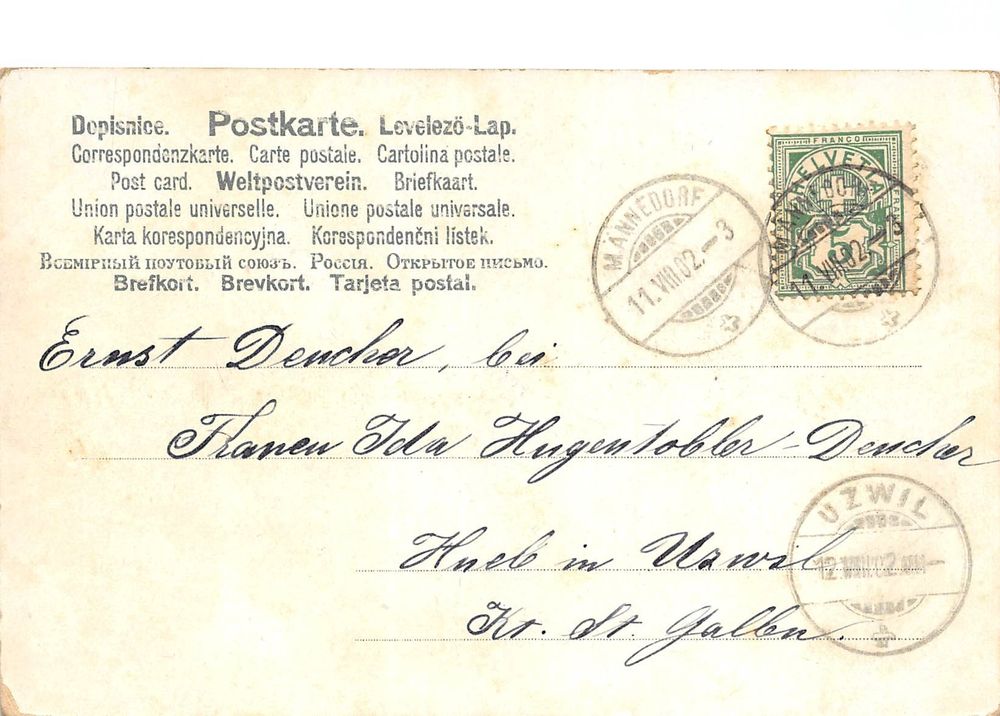 Dopisnice. Postkarte. Levelező-Lap.
Correspondenzkarte. Carte postale. Cartolina postale.
Post card. Weltpostverein. Briefkaart.
Union postale universelle. Unione postale universale.
Karta korespondencyjna. Korespondenční listek.
Всемірный поутовый союзъ. Россія. Открытое письмо.
Brefkort. Brevkort. Tarjeta postal.
FRANCO
HELVETIA
MÄNNEDORF
11.VIII.02.-3
MÄNNEDORF
11.VIII.02.-3
Ernst Deucher, bei
Frauen Ida Hugentobler-Deucher
Hueb in Uzwil
Kt. St. Gallen.
UZWIL
12.VIII.02.